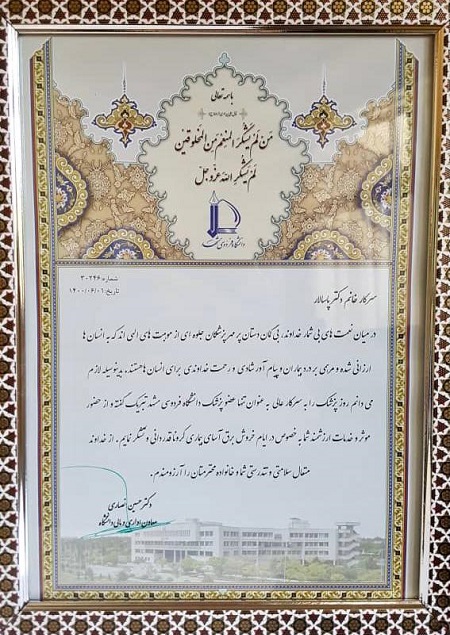 باسمه تعالی
مَن لَم یَشکُرِ المُنعِمَ مِنَ المَخلوقینَ
لَم یَشکُرِ اللهَ عَزَّ وَ جَلّ
دانشگاه فردوسی مشهد
شماره ۳۰۳۴۶
تاریخ ۱۴۰۰/۰۶/۰۱
سرکار خانم دکتر پاسالار
در میان نعمت های بی شمار خداوند، بی گمان دستان پر مهر پزشکان جلوه ای از موهبت های الهی اند که به انسان ها
ارزانی شده و مرهمی بر درد بیماران و پیام آور شادی و رحمت خداوندی برای انسان ها هستند. بدینوسیله لازم
می دانم روز پزشک را به سرکار عالی به عنوان تنها عضو پزشک دانشگاه فردوسی مشهد تبریک گفته و از حضور
موثر و خدمات ارزشمند شما به خصوص در ایام خروش برق آسای بیماری کرونا قدردانی و تشکر نمایم. از خداوند
متعال سلامتی و تندرستی شما و خانواده محترمتان را آرزومندم.
دکتر حسین انصاری
معاون اداری و مالی دانشگاه